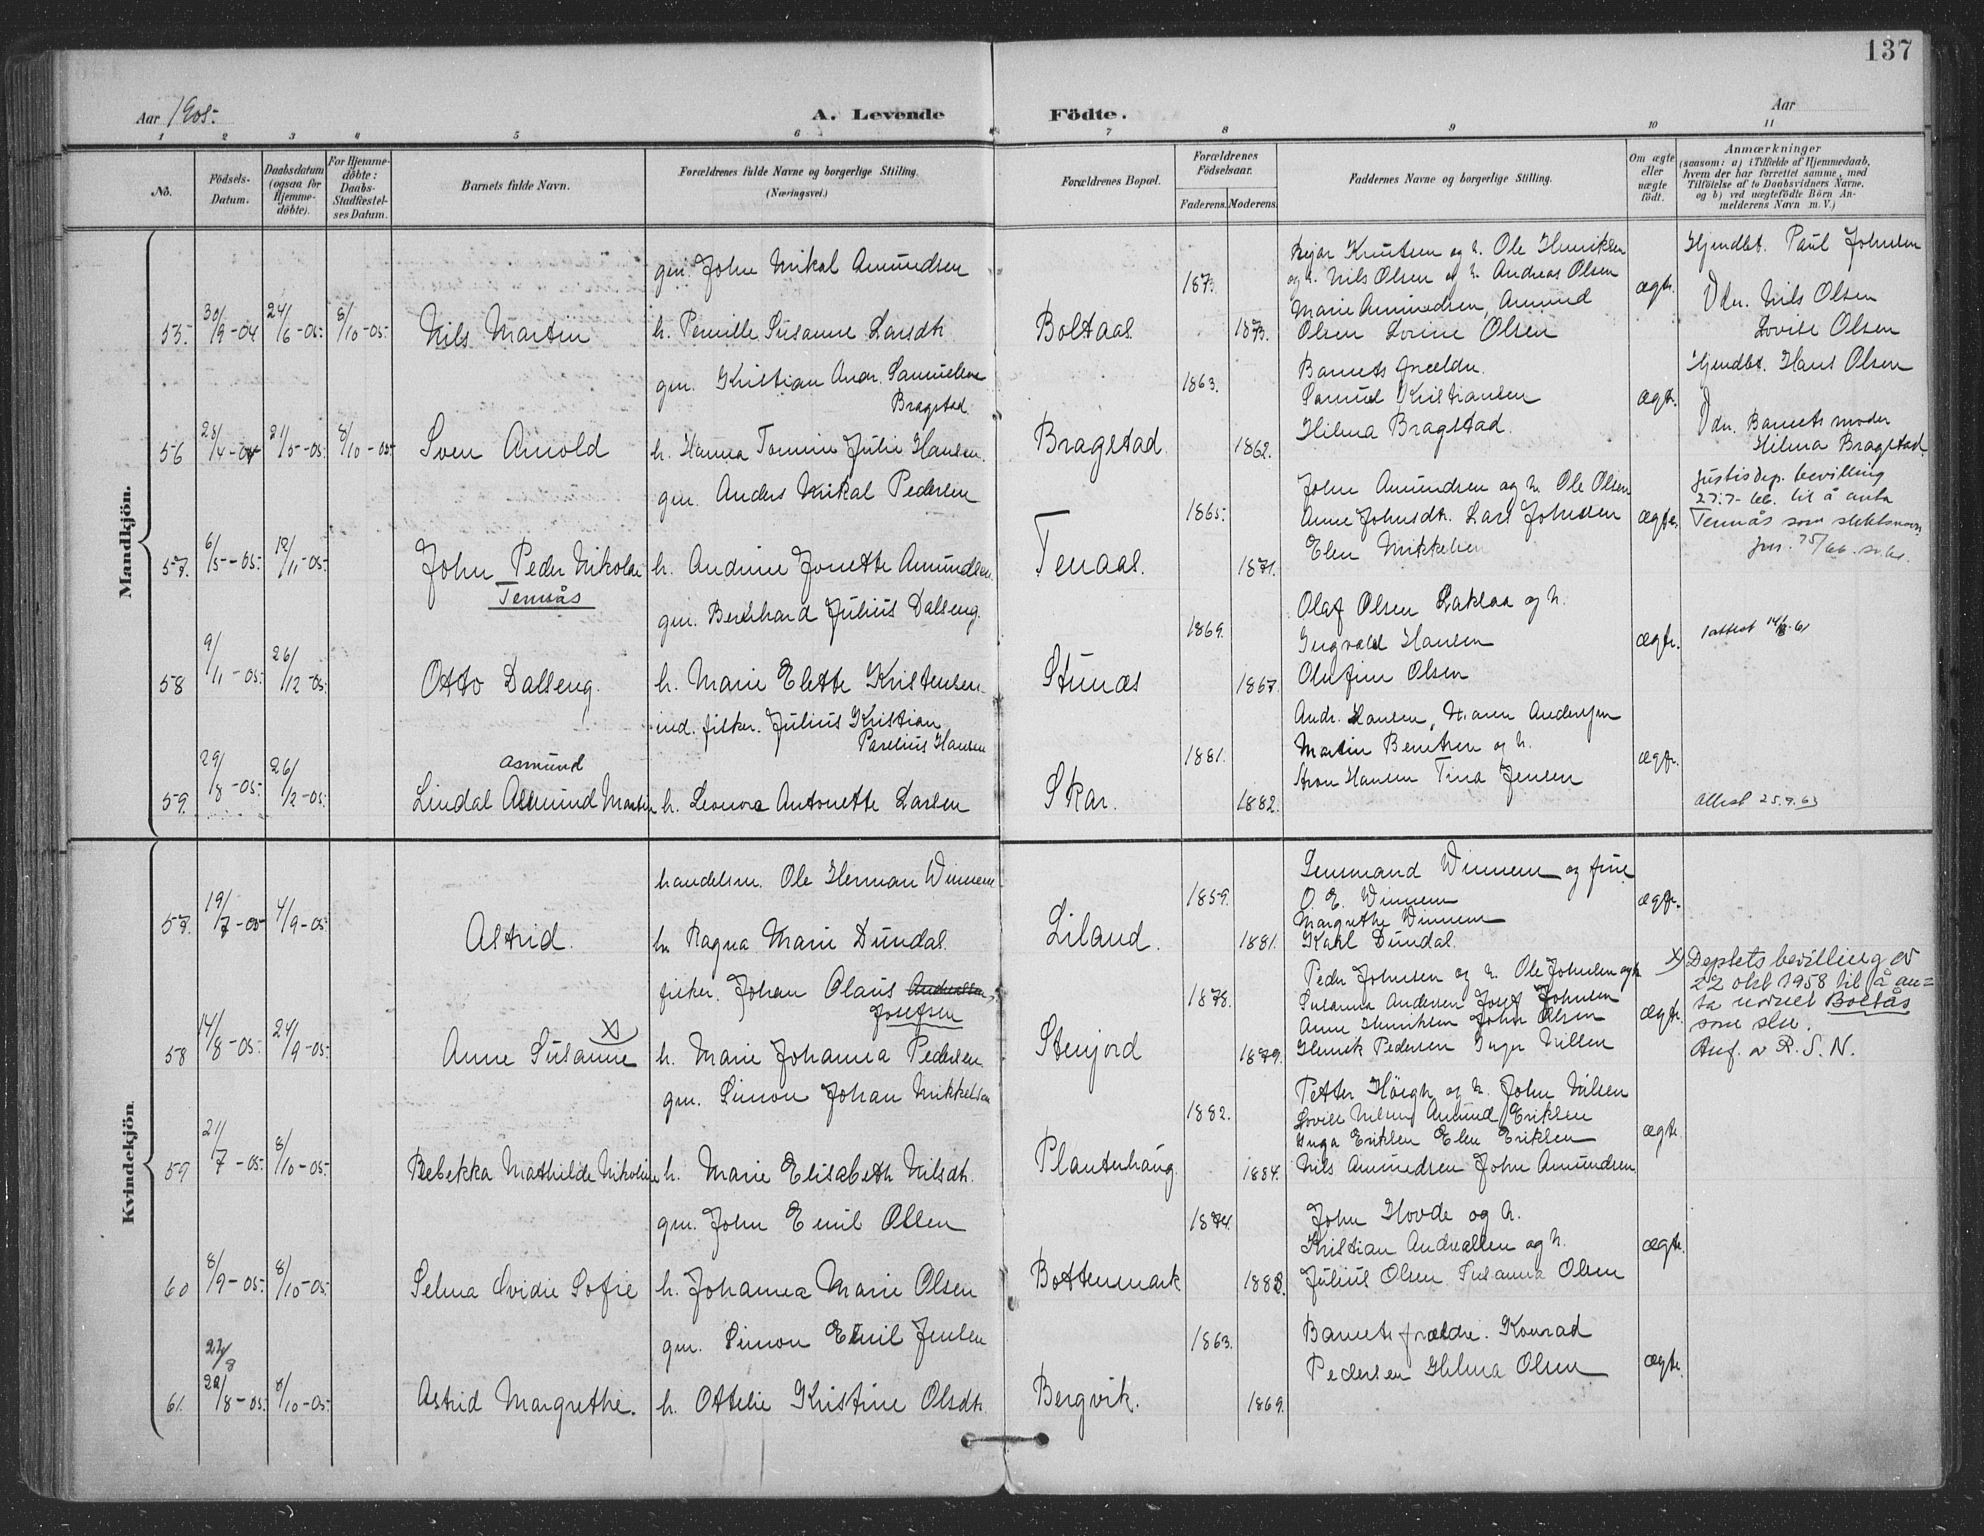 137
Aar 1905.
A. Levende Födte.
Aar
1 2 3 4 5 6 7 8 9 10 11
No.
Födsels-Datum.
Daabsdatum (ogsaa for Hjemme-döbte).
For Hjemme-döbte: Daabs-Stadfæstel-ses Datum.
Barnets fulde Navn.
Forældrenes fulde Navne og borgerlige Stilling. (Næringsvei.)
Forældrenes Bopæl.
Forældrenes Födselsaar.
Faderens. Moderens.
Faddernes Navne og borgerlige Stilling.
Om ægte eller uægte födt.
Anmærkninger
(saasom: a) i Tilfælde af Hjemmedaab, hvem der har forrettet samme, med Tilföielse af to Daabsvidners Navne, og b) ved uægtefödte Börn An-melderens Navn m. V.)
Mandkjön.
gm. John Mikal Amundsen
187
Knutsen og h. Ole Henriksen
og h. Nils Olsen og h. Andreas Olsen
Marie Amundsen, Amund
ægte.
Hjmdbt. Paul Johnsen
Vdn. Nils Olsen
Lovise Olsen
55. 30/9-04 24/6-05. 8/10-05. Nils Martin h. Pernille Susanne Larsdtr. Boltaas 1873. Olsen Lovine Olsen
gm. Kristian Andr. Samuelsen
Bragstad
1863.
Barnets forældre.
Samuel Kristiansen
ægte.
Hjmdbt. Hans Olsen
Vdn. Barnets moder
Hilma Bragstad.
56 /4-04 21/5-05. 8/10-05 Sven Arnold h. Hanna Tomine Julie Hansen. Bragstad 1862. Hilma Bragstad.
gm. Anders Mikal Pedersen
1865.
John Amundsen og h. Ole Olsen
Anne Johnsdtr. Lars Johnsen
ægte.
Justisdep. bevilling
27.7-66. til å anta
Tennås som slektsnavn
jnr. 75/66.
57. 6/5-05. 12/11-05. John Peder Nikolai h. Andrine Jonette Amundsen. Tenaas. 1871. Elen Mikkelsen
Tennås
gm. Bernhard Julius Dalseng.
1869.
Olaf Olsen Laklaa og h.
Ingvald Hansen
ægte.
1 attest 14/8-61
58 9/11-05. 26/12-05. Otto Dalseng. h. Marie Elette Kristensen. Stunes 1867. Olufine Olsen
ind. fisker. Julius Kristian
Parelius Hansen
1881.
Andr. Hansen, Haren Andersen
Martin Berntsen og h.
ægte.
asmund
59. 29/8-05. 26/12-05. Lindal Asmund Martin h. Leonora Antonette Larsen Skar. 1882. Aron Hansen Tina Jensen
Attest 25.9.63
Kvindekjön.
handelsm. Ole Herman Winnem
1859.
Winnem og frue
O. E. Winnem
Margrethe Winnem
ægte.
57. 19/7-05 4/9-05. Astrid. h. Ragna Marie Dundal. Liland. 1881. Karl Dundal.
fisker. Johan Olaus Andreassen,
Josefsen
1878.
Peder Johnsen og h. Ole Johnsen og h.
Susanna Andersen Josef Johnsen
Anne Henriksen John Olsen
ægte.
x) Deptets bevilling av
22 okt 1958 til å an=
ta navnet Boltås
som sln.
Anf. av R. S. N.
58 14/8-05. 24/9-05. Anne Susanne x) h. Marie Johanna Pedersen Stenjord 1879. Henrik Pedersen Inger Nilsen
gm. Simon Johan Mikkelsen
1882.
Petter Höigh og h. John Nilsen
Lovise Nilsen Amund Eriksen
Inga Eriksen Elen Eriksen
ægte.
59 21/7-05. 8/10-05. Rebekka Mathilde Nikoline h. Marie Elisabeth Nilsdtr. Planterhaug. 1884. Nils Amundsen John Amundsen
gm. John Emil Olsen
1874.
John Hovde og h.
Kristian Andreassen og h.
ægte.
60 8/9-05. 8/10-05. Selma Ovidie Sofie h. Johanna Marie Olsen Bottenmark 1888. Julius Olsen. Susanna Olsen
gm. Simon Emil Jensen
1863.
Barnets forældre. Konrad
Pedersen Hilma Olsen
ægte.
22/8
61. 22/8-05. 8/10-05. Astrid Margrethe. h. Ottelie Kristine Olsdtr. Bergvik. 1869.